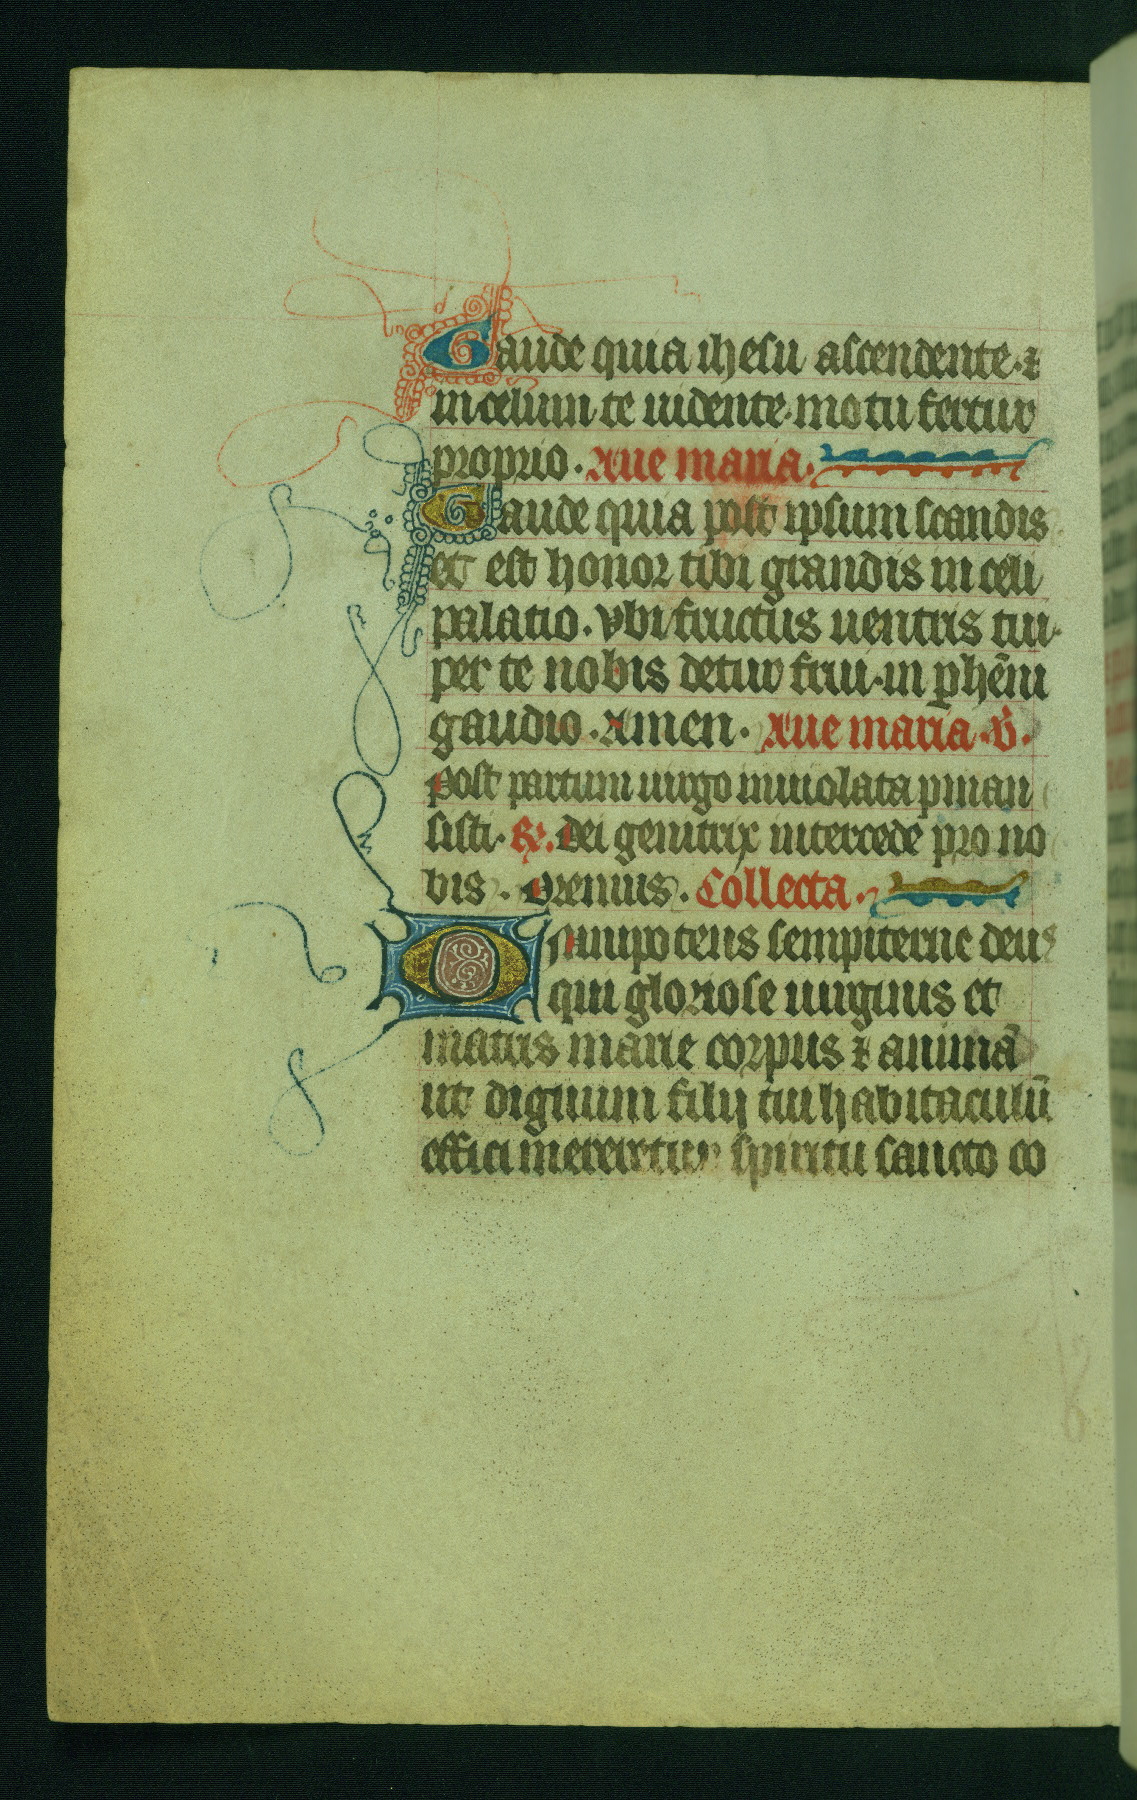 Gaude quia ihesu ascendente ⁊
in celum te uidente motu fertur
proprio. Aue maria.
Gaude quia post ipsum scandis
et est honor tibi grandis in celi
palacio. Vbi fructus uentris tui.
per te nobis detur frui. in p̱hēni
gaudio. Amen. Aue maria. v̄.
Post partum uirgo inuiolata ꝑman
sisti. ℟. Dei genitrix intercede pro no
bis. Oremus. Collecta.
Omnipotens sempiterne deus
qui gloriose uirginis et
matris marie corpus ⁊ animā
ut dignum filij tui habitaculū
effici mereretur spiritu sancto co